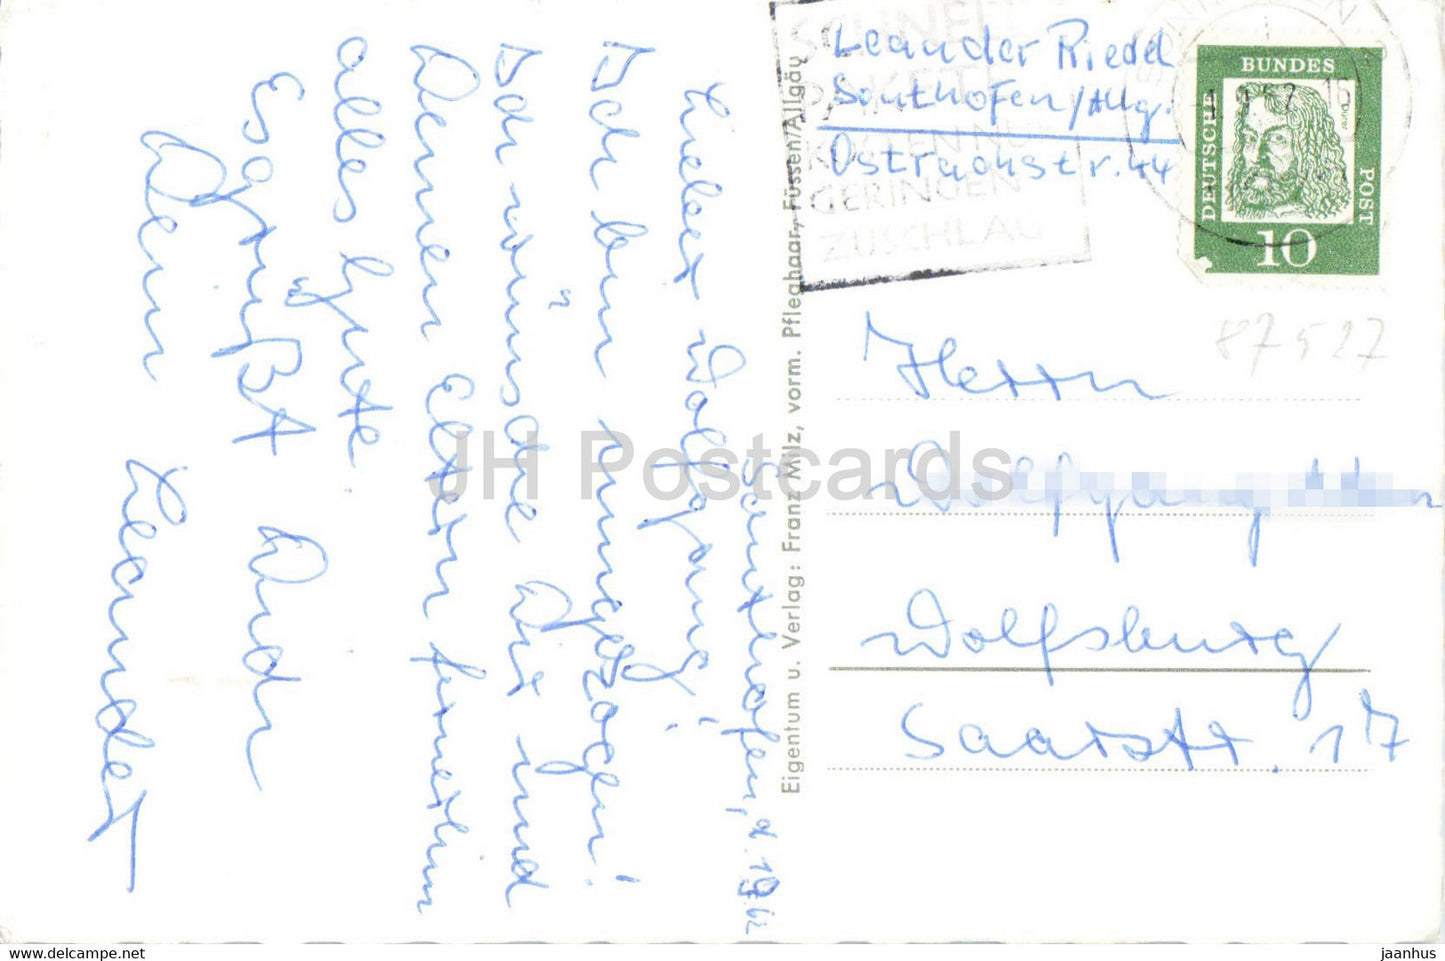 Sonthofen, d.
Lieber Wolfgang!
Ich bin umgezogen!
Ich wünsche Dir und
Deinen Eltern fernerhin
alles Gute.
Es grüßt Dich
Dein Leander
Eigentum u. Verlag: Franz Milz, vorm. Pfleghaar, Füssen/Allgäu
SCHNELL
PAKET
KOSTEN NUR
GERINGEN
ZUSCHLAG
Leander Riedel
Sonthofen/Allg.
Ostrachstr. 44
DEUTSCHE
BUNDES
POST
Dürer
10
87527
Herrn
Wolfgang
Wolfsburg
Saarstr. 17
JH Postcards
www.hippostcard.com
jaanhus